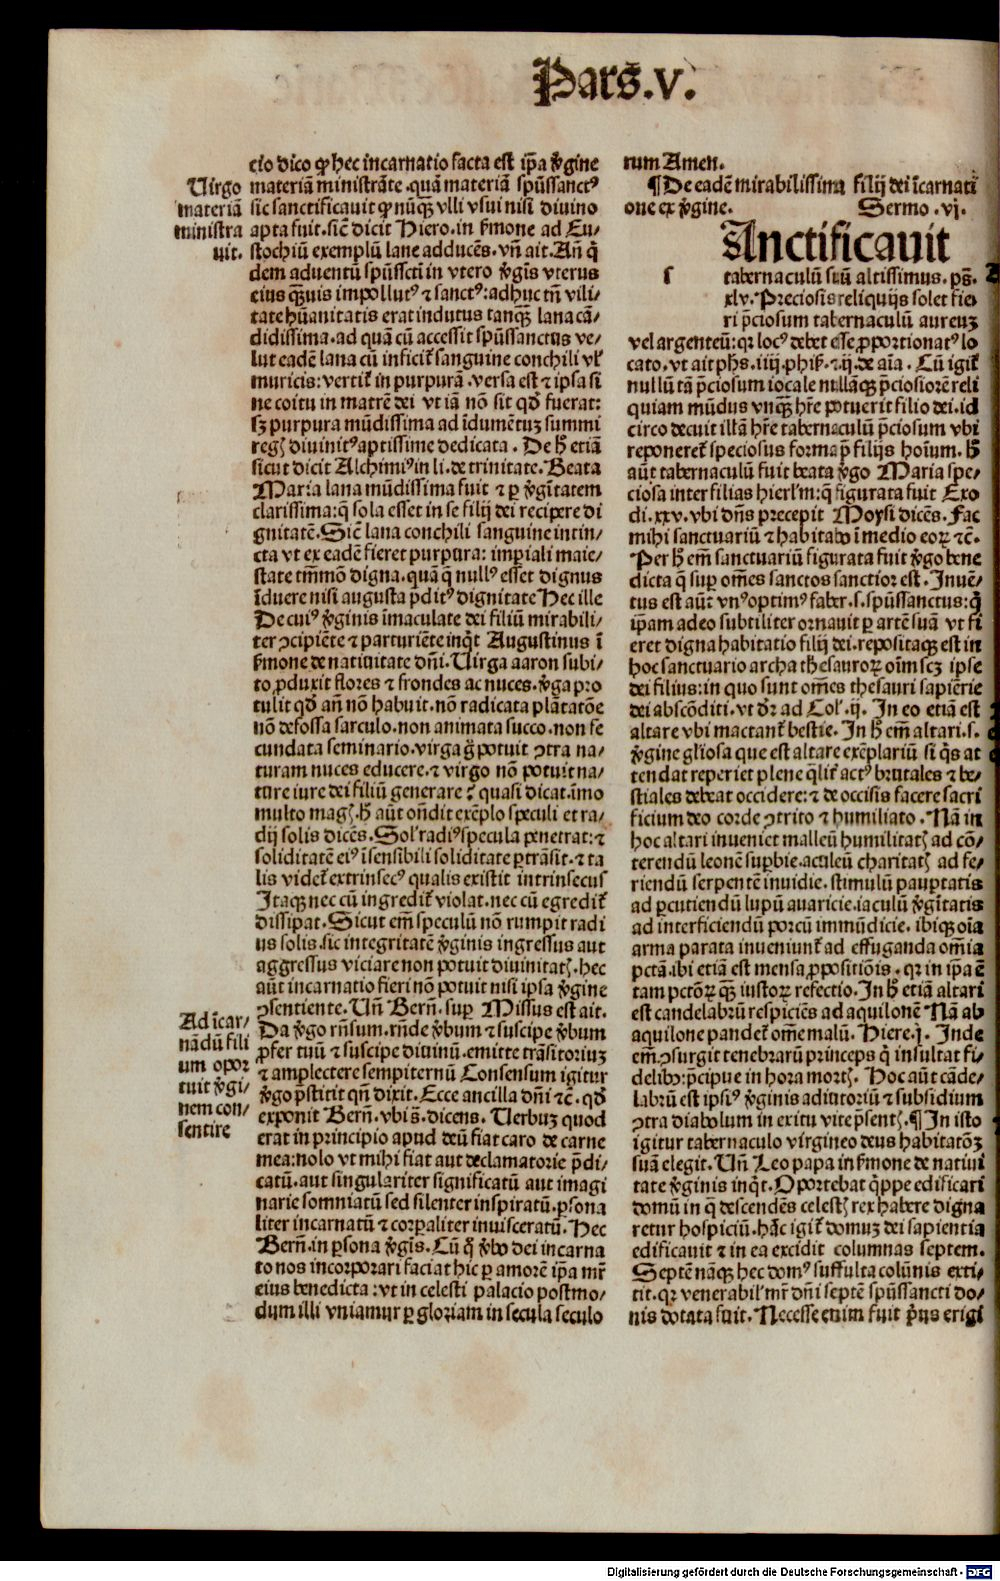 Pars.v.
cio dico ꝙ hec incarnatio facta est ip̄a v̄gine
Virgo
materiā
ministra
uit.
materiā ministrāte.quā materiā spūssanctꝰ
sic sanctificauit ꝙ nūqꝫ vlli vsui nisi diuino
apta fuit.sicē dicit Hiero.in ẜmone ad Eu-
stochiū exemplū lane adducēs.vn̄ ait.An̄ q̄
dem aduentū spūssctū in vtero v̄gīs vterus
eius qꝫuis impollutꝰ ⁊ sanctꝰ:adhuc tn̄ vili-
tate hūanitatis erat indutus tanqꝫ lana cā-
didissima.ad quā cū accessit spūssanctus ve-
lut eadē lana cū inficit̄ sanguine conchili vl̓
muricis:vertit̄ in purpurā.versa est ⁊ ipsa si
ne coitu in matrē dei vt iā nō sit qd̄ fuerat:
sꝫ purpura mūdissima ad īdumētuꝫ summi
regꝭ diuinitꝰ aptissime dedicata. De h̄ etiā
sicut dicit Alchimiꝰ in li.de trinitate.Beata
Maria lana mūdissima fuit ⁊ ꝑ v̄gītatem
clarissima:q̄ sola esset in se filij dei recipere di
gnitatē.Sicē lana conchili sanguine intin-
cta vt ex eadē fieret purpura: impiali maie-
state tm̄mō digna.quā q̄ nullꝰ esset dignus
īduere nisi augusta p̄ditꝰ dignitate Hec ille
De cuiꝰ v̄ginis īmaculate dei filiū mirabili-
ter ↄcipiēte ⁊ parturiēte inq̄t Augustinus ī
ẜmone de natiuitate dn̄i.Virga aaron subi-
to ꝓduxit flores ⁊ frondes ac nuces.v̄ga pro
tulit qd̄ an̄ nō habuit.nō radicata plātatōe
nō defossa sarculo.non animata succo.non fe
cundata seminario.virga q̄ potuit ↄtra na-
turam nuces educere.⁊ virgo nō potuit na-
ture iure dei filiū generare? quasi dicat.īmo
multo magꝭ.h̄ aūt on̄dit exēplo speculi et ra-
dij solis dicēs.Sol̓ radiꝰ specula penetrat:⁊
soliditatē eiꝰ īsensibili soliditate ꝑtrāsit.⁊ ta
lis videt̄ extrinsecꝰ qualis existit intrinsecus
Itaqꝫ nec cū ingredit̄ violat.nec cū egredit̄
dissipat.Sicut em̄ speculū nō rumpit radi
us solis.sic integritatē v̄ginis ingressus aut
aggressus viciare non potuit diuinitatꝭ.hec
aūt incarnatio fieri nō potuit nisi ipsa v̄gine
ↄsentiente.Vn̄ Bern̄.sup Missus est ait.
Ad īcar-
nādū fili
um opor
tuit v̄gi-
nem con-
sentire
Da v̄go rn̄sum.rn̄de v̄bum ⁊ suscipe v̄bum
ꝓfer tuū ⁊ suscipe diuinū.emitte trāsitoriuꝫ
⁊ amplectere sempiternū Consensum igitur
v̄go p̄stitit qn̄ dixit.Ecce ancilla dn̄i ⁊c̄. qd̄
exponit Bern̄.vbi s̄.dicens. Verbuꝫ quod
erat in principio apud deū fiat caro de carne
mea:nolo vt mihi fiat aut declamatorie p̄di-
catū.aut singulariter significatū aut imagi
narie somniatū sed silenter inspiratū.ꝑsona
liter incarnatū ⁊ corꝑaliter inuisceratū. Hec
Bern̄.in ꝑsona v̄gīs.Cū q̄ v̄bo dei incarna
to nos incorporari faciat hic ꝑ amorē ip̄a mr̄
eius benedicta:vt in celesti palacio postmo-
dum illi vniamur ꝑ gloriam in secula seculo
rum Amen.
¶De eadē mirabilissima filij dei īcarnati
one ex v̄gine. Sermo .vj.
sAnctificauit
tabernaculū suū altissimus.ps̄.
xlv.Preciosis reliquijs solet fie
ri p̄ciosum tabernaculū aureuꝫ
vel argenteū:qꝛ locꝰ debet esse ꝓportionatꝰ lo
cato.vt ait ph̄s.iiij.phiẜ.⁊.ij.de aīa. Cū igit̄
nullū tā p̄ciosum iocale nullāqꝫ p̄ciosiorē reli
quiam mūdus vnqꝫ hr̄e potuerit filio dei.id
circo decuit illā hr̄e tabernaculū p̄ciosum vbi
reponeret̄ speciosus forma p̄ filijs hoīum. h̄
aūt tabernaculū fuit beata v̄go Maria spe-
ciosa inter filias hierl̓m:q̄ figurata fuit Exo
di.xxv.vbi dn̄s precepit Moysi dicēs. Fac
mihi sanctuariū ⁊ habitabo ī medio eoꝝ ⁊c̄.
Per h̄ em̄ sanctuariū figurata fuit v̄go bene
dicta q̄ suꝑ om̄es sanctos sanctior est. Inuē-
tus est aūt vnꝰ optimꝰ faber.s.spūssanctus:q̄
ip̄am adeo subtiliter ornauit ꝑ artē suā vt fi
eret digna habitatio filij dei.repositaqꝫ est in
hoc sanctuario archa thesauroꝝ oīm scꝫ ipse
dei filius:in quo sunt om̄es thesauri sapiētie
dei abscōditi.vt dr̄ ad Col̓.ij. In eo etiā est
altare vbi mactant̄ bestie. In h̄ em̄ altari.s.
v̄gine gl̄iosa que est altare exēplariū si q̄s at
tendat reperiet plene q̄lit̄ actꝰ brutales ⁊ be-
stiales debeat occidere:⁊ de occisis facere sacri
ficium deo corde ↄtrito ⁊ humiliato. Nā in
hoc altari inueniet malleū humilitatꝭ ad cō-
terendū leonē suꝑbie.aculeū charitatꝭ ad fe-
riendū serpentē inuidie.stimulū pauptatis
ad ꝑcutiendū lupū auaricie.iaculū v̄gītatis
ad interficiendū porcū immūdicie. ibiqꝫ oīa
arma parata inueniunt̄ ad effuganda om̄ia
pctā.ibi etiā est mensa ꝓpositiōis. qꝛ in ip̄a ē
tam pctōꝝ qꝫ iustoꝝ refectio.In h̄ etiā altari
est candelabrū respiciēs ad aquilonē Nā ab
aquilone pandet̄ om̄e malū. Hiere.j. Inde
em̄ ↄsurgit tenebrarū princeps q̄ insultat fi-
delibꝰ:p̄cipue in hora mortꝭ. Hoc aūt cāde-
labrū est ipsiꝰ v̄ginis adiutoriū ⁊ subsidium
ↄtra diabolum in exitu vite p̄sentꝭ.¶In isto
igitur tabernaculo virgineo deus habitatōꝫ
suā elegit.Vn̄ Leo papa in ẜmone de natiui
tate v̄ginis inq̄t.Oportebat q̄ppe edificari
domū in q̄ descendēs celestꝭ rex habere digna
retur hospiciū.hāc igit̄ domuꝫ dei sapientia
edificauit ⁊ in ea excidit columnas septem.
Septē nāqꝫ hec domꝰ suffulta colūnis exti-
tit.qꝛ venerabil̓ mr̄ dn̄i septē spūssancti do-
nis dotata fuit.Necesse enim fuit p̄us erigi
Digitalisierung gefördert durch die Deutsche Forschungsgemeinschaft - DFG